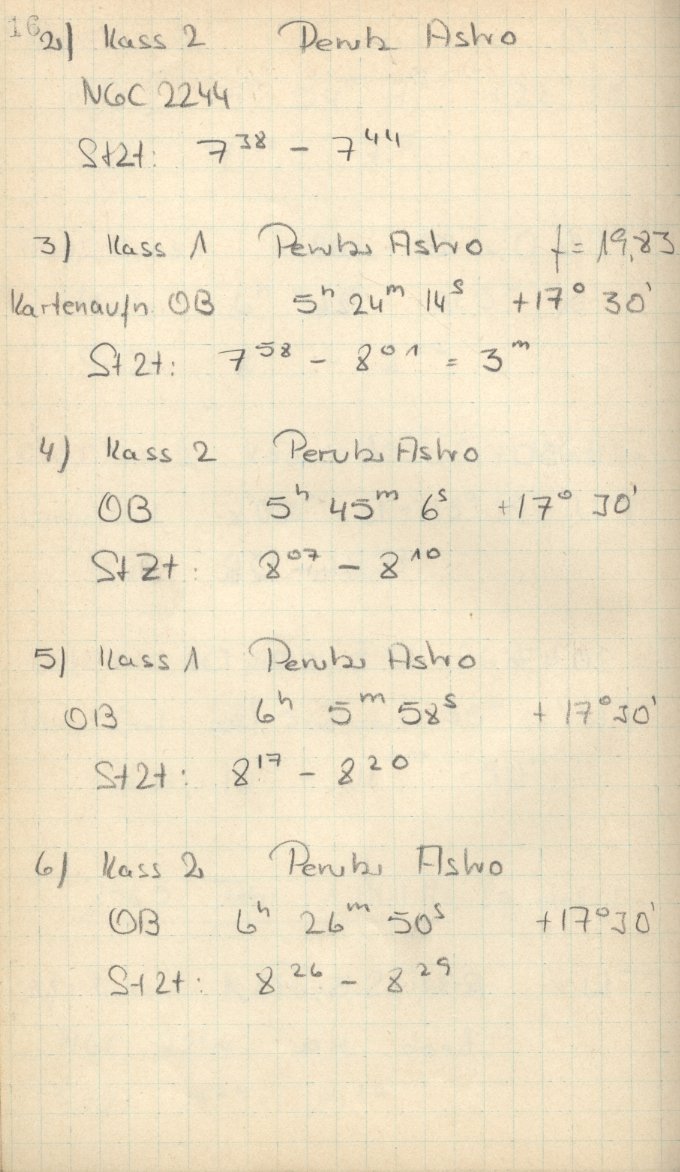 16
2) Kass 2 Perutz Astro
NGC 2244
StZt: 7³⁸ – 7⁴⁴
3) Kass 1 Perutz Astro f = 19,83
Kartenaufn OB 5ʰ 24ᵐ 14ˢ +17° 30'
StZt: 7⁵⁸ – 8⁰¹ = 3ᵐ
4) Kass 2 Perutz Astro
OB 5ʰ 45ᵐ 6ˢ +17° 30'
StZt: 8⁰⁷ – 8¹⁰
5) Kass 1 Perutz Astro
OB 6ʰ 5ᵐ 58ˢ +17° 30'
StZt: 8¹⁷ – 8²⁰
6) Kass 2 Perutz Astro
OB 6ʰ 26ᵐ 50ˢ +17° 30'
StZt: 8²⁶ – 8²⁹